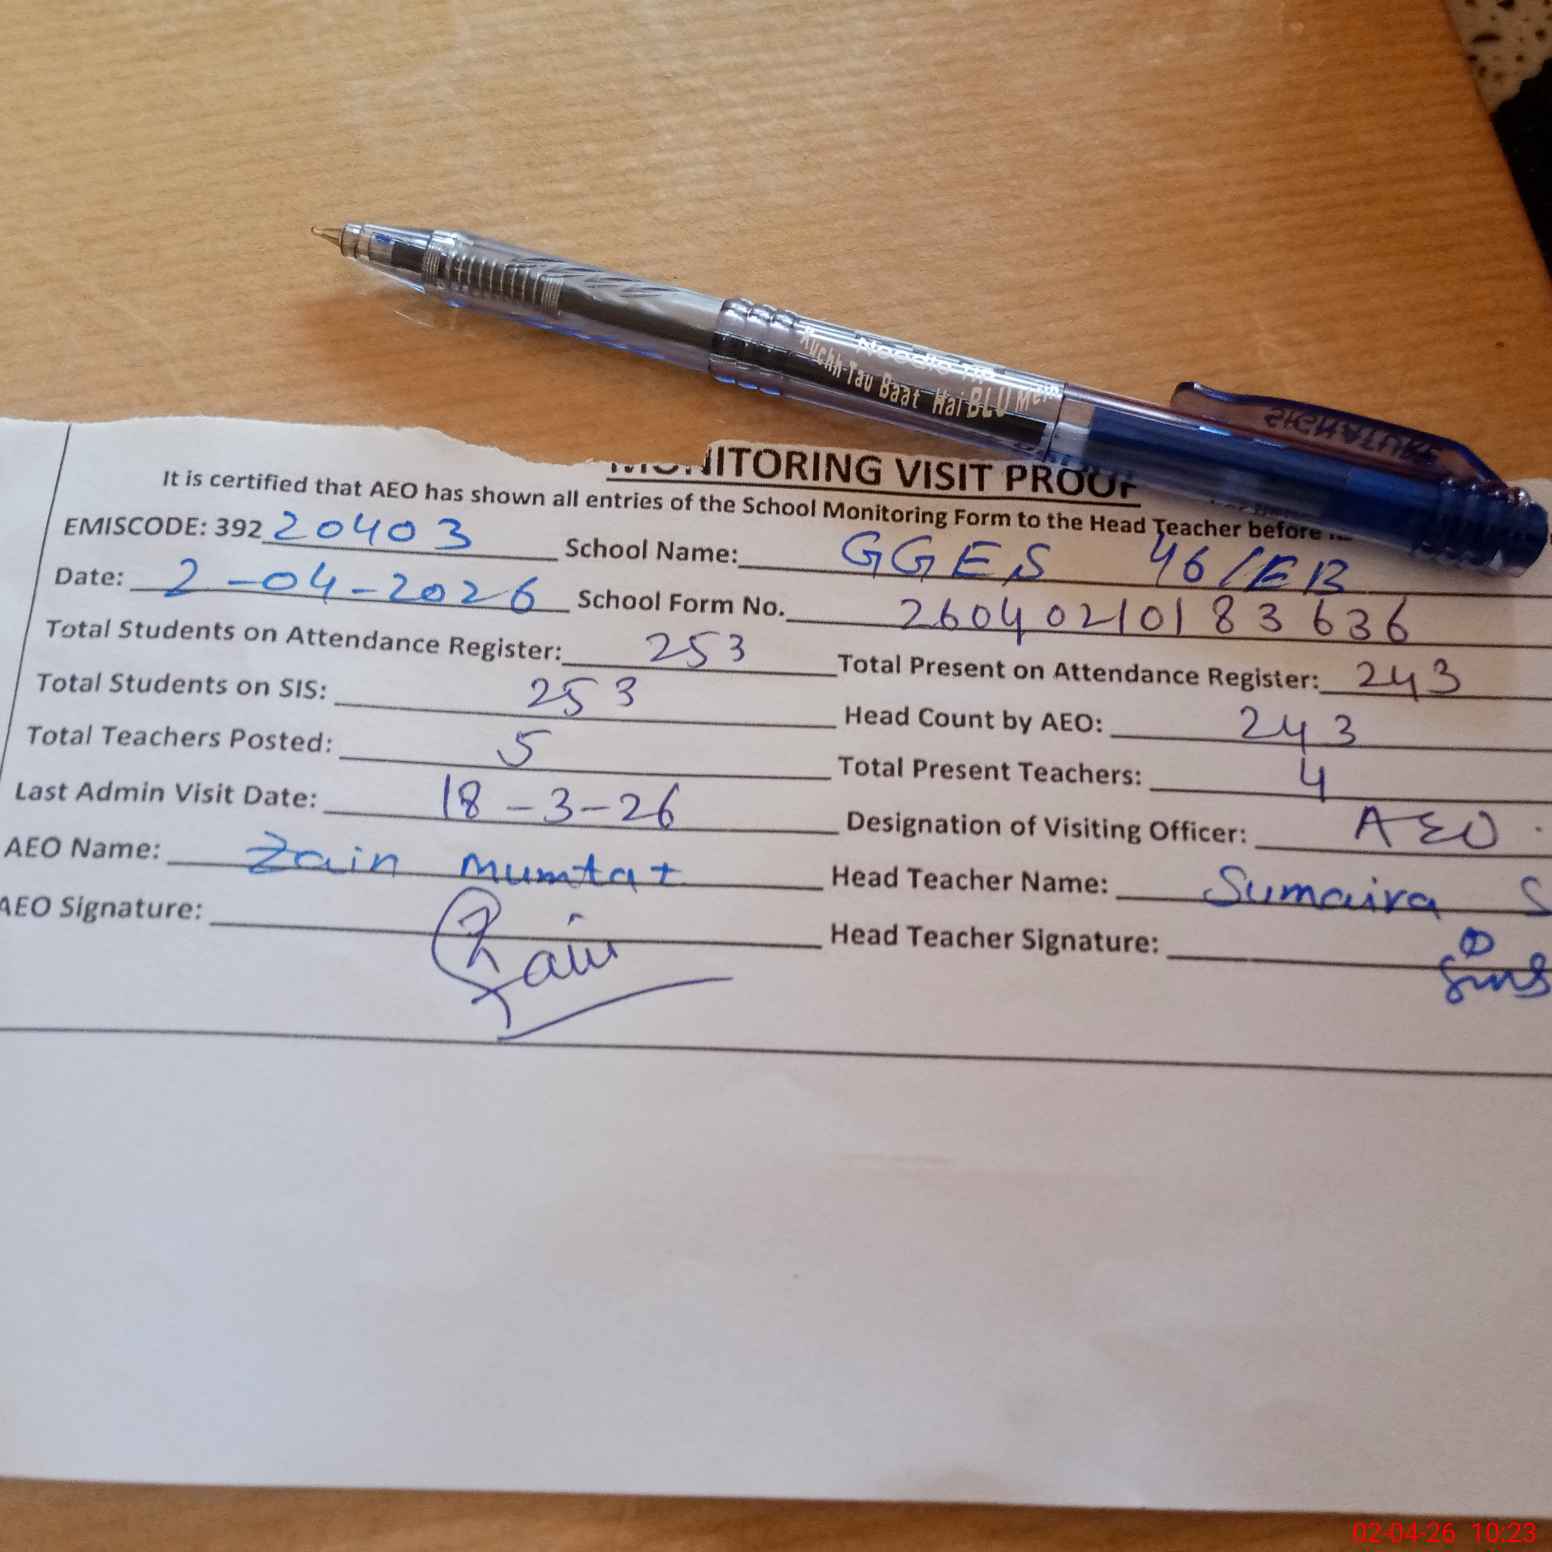 Needle Tip
Kuchh Tau Baat Hai BLU Mein
SIGNATURE
MONITORING VISIT PROOF
It is certified that AEO has shown all entries of the School Monitoring Form to the Head Teacher before
EMISCODE: 39220403 School Name: GGES 46/EB
Date: 2-04-2026 School Form No. 26040210183636
Total Students on Attendance Register: 253 Total Present on Attendance Register: 243
Total Students on SIS: 253 Head Count by AEO: 243
Total Teachers Posted: 5 Total Present Teachers: 4
Last Admin Visit Date: 18-3-26 Designation of Visiting Officer: AEO
AEO Name: Zain Mumtaz Head Teacher Name: Sumaira S
AEO Signature: Zain Head Teacher Signature:
02-04-26 10:23